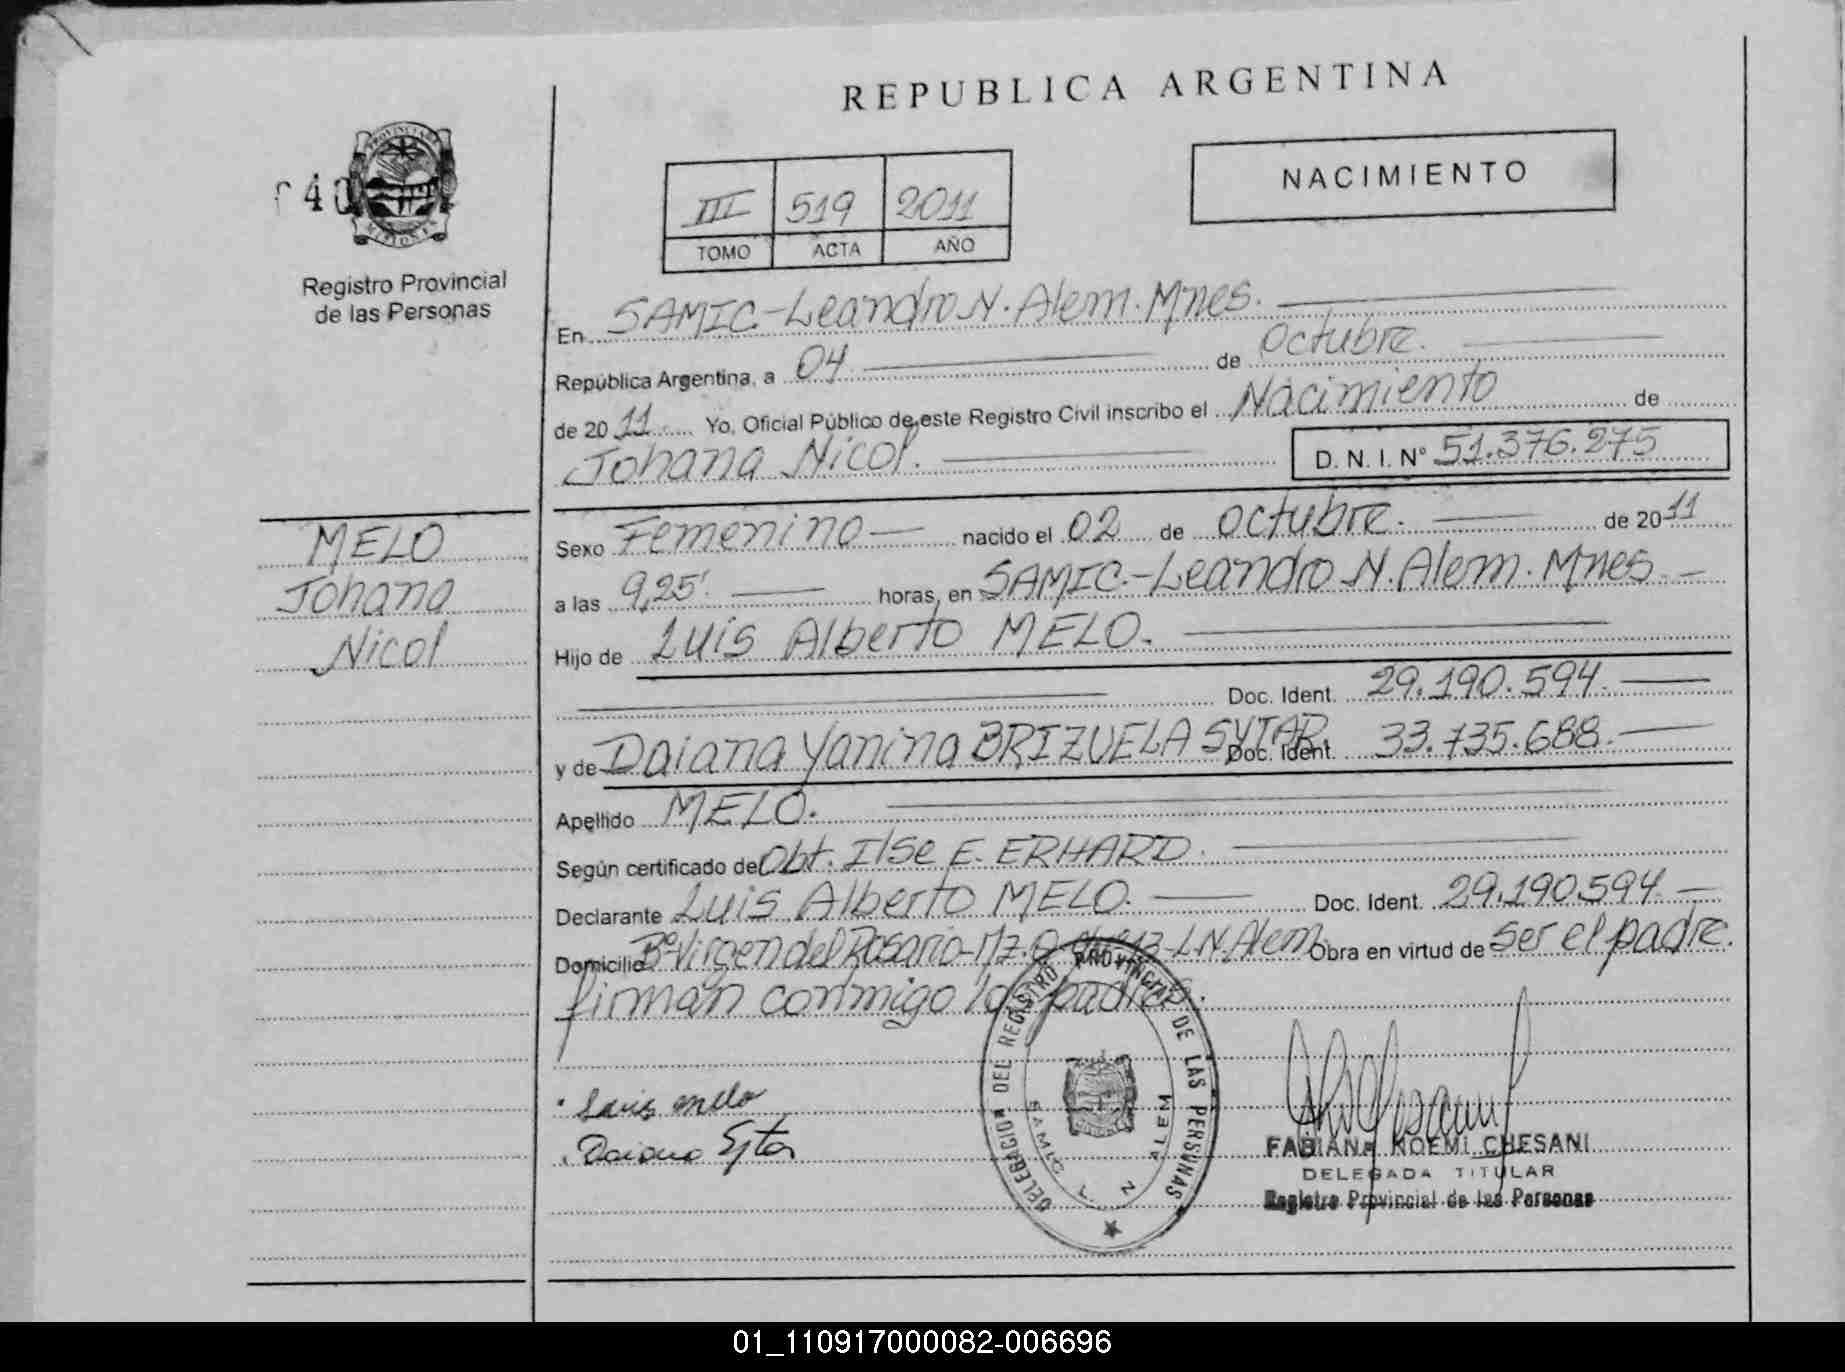 REPUBLICA ARGENTINA
NACIMIENTO
III 519 2011
TOMO ACTA AÑO
PROVINCIA DE
MISIONES
40
Registro Provincial
de las Personas
En SAMIC.-Leandro N. Alem. Mnes.
República Argentina, a 04 de octubre.
de 2011 Yo, Oficial Público de este Registro Civil inscribo el Nacimiento de
Johana Nicol. D. N. I. N° 51.376.275
MELO
Johana
Nicol
Sexo Femenino nacido el 02 de octubre. de 2011
a las 9,25' horas, en SAMIC.-Leandro N. Alem. Mnes.
Hijo de Luis Alberto MELO.
Doc. Ident. 29.190.594.
y de Daiana Yanina BRIZUELA SYTAR Doc. Ident. 33.735.688.
Apellido MELO.
Según certificado de Obt. Ilse E. ERHARD.
Declarante Luis Alberto MELO. Doc. Ident. 29.190.594.
Domicilio B° Virgen del Rosario-Mz. L.N. Alem Obra en virtud de ser el padre.
firman conmigo los padres.
Luis melo
Daiana
DELEGACION DEL REGISTRO PROVINCIAL DE LAS PERSONAS
SAMIC L. N. ALEM
FABIANA NOEMI CHESANI
DELEGADA TITULAR
Registro Provincial de las Personas
01_110917000082-006696